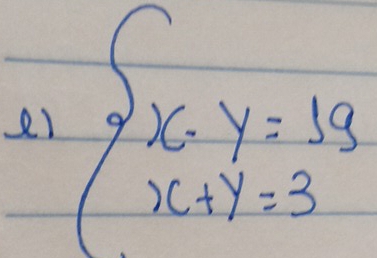 e) x - y = 19
x + y = 3